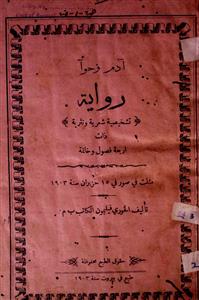 آدم وحوا
رواية
تشخيصية شعرية ونثرية
ذات
اربعة فصول وخاتمة
مثلت في صور في ١٥ حزيران سنة ١٩٠٣
تأليف الخوري فيليمون الكاتب ب م
حقوق الطبع محفوظة
طبع في بيروت سنة ١٩٠٣